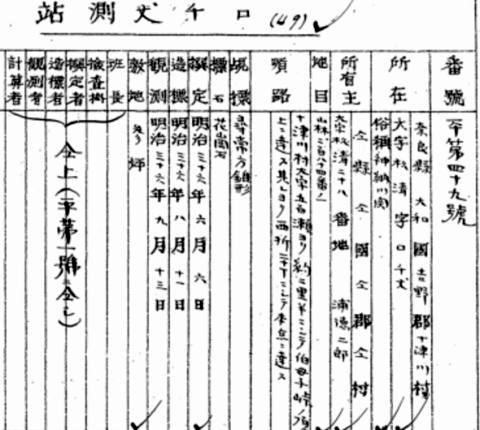 站測丈チロ
(49)
番號 平第四十九號
所在 奈良縣 大和國吉野郡十津川村
大字杉清 字ロチ丈
俗稱神納川奥
所有主 仝縣仝國仝郡仝村
大字杉清二十八番地 浦德二郎
地目 山林
順路 十津川村大字五百瀬ヨリ約二里半ニシテ伯母子峠ノ頂
上ニ達ス
覘標 尋常方錐形
標石 花崗石
撰定 明治三十六年六月六日
造標 明治三十六年八月十一日
觀測 明治三十六年九月十三日
敷地
班長
檢査掛
撰定者
造標者
觀測者
計算者
仝上(平第一號ニ仝シ)